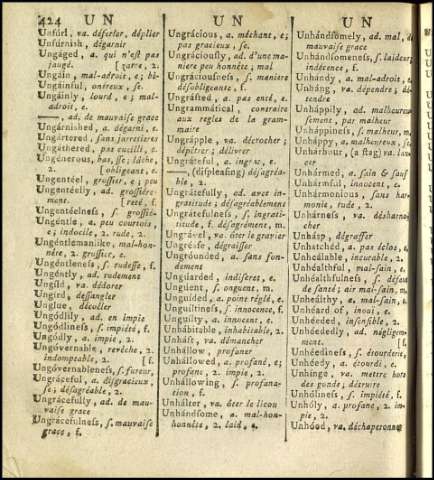 424 UN UN UN
Unfúrl, va. déferler, déplier
Unfúrnish, dégarnir
Ungáged, a. qui n'est pas
jaugé. [zarre, 2.
Ungáin, mal-adroit, e; bi-
Ungáinful, onéreux, se
Ungáinly, lourd, e; mal-
adroit, e.
——, ad. de mauvaise grace
Ungárnished, a. dégarni, e.
Ungártered, sans jarretieres
Ungáthered, pas cueilli, e.
Ungénerous, bas, sse; lâche,
2. [obligeant, e.
Ungentéel, grossier, e; peu
Ungentéelly, ad. grossiére-
ment. [reté, f.
Ungentéelness, s. grossié-
Ungéntle, a. peu courtois,
e; indocile, 2. rude, 2.
Ungéntlemanlike, mal-hon-
nête, 2. grossier, e.
Ungéntleness, s. rudesse, f.
Ungéntly, ad. rudement
Ungíld, va. dédorer
Ungírd, dessangler
Unglúe, décoller
Ungódlily, ad. en impie
Ungódliness, s. impiété, f.
Ungódly, a. impie, 2.
Ungóvernable, revêche, 2.
indomptable, 2. [f.
Ungóvernableness, s. fureur,
Ungráceful, a. disgracieux,
se; désagréable, 2.
Ungrácefully, ad. de mau-
vaise grace
Ungrácefulness, s. mauvaise
grace, f.
Ungrácious, a. méchant, e;
pas gracieux, se.
Ungráciously, ad. d'une ma-
niere peu honnête; mal
Ungráciousness, s. maniere
désobligeante, f.
Ungráfted, a. pas enté, e.
Ungrammátical, contraire
aux regles de la gram-
maire
Ungrápple, va. décrocher;
dépêtrer; délivrer
Ungráteful, a. ingrat, e.
——, (displeasing) désagréa-
ble, 2.
Ungrátefully, ad. avec in-
gratitude; désagréablement
Ungrátefulness, s. ingrati-
titude, f. désagrément, m.
Ungrável, va. ôter le gravier
Ungréase, dégraisser
Ungróunded, a. sans fon-
dement
Unguárded, indiscret, e.
Únguent, s. onguent, m.
Unguíded, a. point réglé, e.
Unguíltiness, s. innocence, f.
Unguílty, a. innocent, e.
Unhábitable, inhabitable, 2.
Unháft, va. démancher
Unhállow, profaner
Unhállowed, a. profané, e;
profane, 2. impie, 2.
Unhállowing, s. profana-
tion, f.
Unhálter, va. ôter le licou
Unhándsome, a. mal-hon-
honnête, 2. laid, e.
Unhándsomely, ad. mal, de
mauvaise grace
Unhándsomeness, s. laideur;
indécence, f.
Unhándy, a. mal-adroit, e.
Unháng, va. dépendre; dé-
tendre
Unháppily, ad. malheureu-
sement, par malheur
Unháppiness, s. malheur, m.
Unháppy, a. malheureux, se
Unhárbour, (a stag) va. lan-
cer
Unhármed, a. sain & sauf
Unhármful, innocent, e.
Unharmónious, sans har-
monie, rude, 2.
Unhárness, va. désharna-
cher
Unhásp, dégrafer
Unhátched, a. pas éclos, e.
Unhéalable, incurable, 2.
Unhéalthful, mal-sain, e.
Unhéalthfulness, s. défaut
de santé; air mal-sain, m.
Unhéalthy, a. mal-sain, e.
Unhéard of, inoui, e.
Unhéeded, insensible, 2.
Unhéededly, ad. négligem-
ment. [f.
Unhéediness, s. étourderie,
Unhéedy, a. étourdi, e.
Unhínge, va. mettre hors
des gonds; détruire
Unhóliness, s. impiété, f.
Unhóly, a. profane, 2. im-
pie, 2.
Unhóod, va. déchaperonner